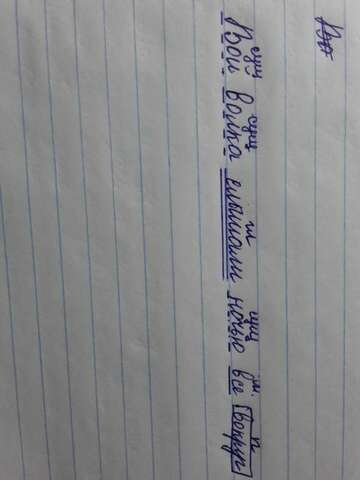 сущ сущ гл сущ м. п
Вой волка слышали ночью все вокруг